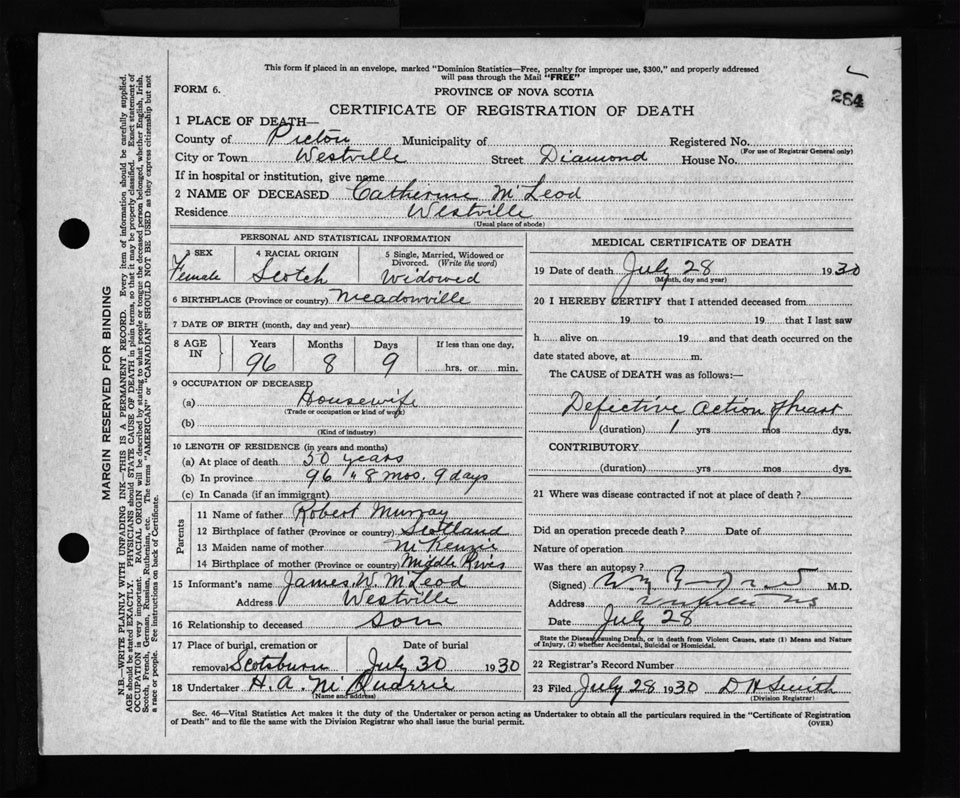 This form if placed in an envelope, marked "Dominion Statistics—Free, penalty for improper use, $300," and properly addressed
will pass through the Mail "FREE"
FORM 6.
PROVINCE OF NOVA SCOTIA
284
CERTIFICATE OF REGISTRATION OF DEATH
1 PLACE OF DEATH—
County of Pictou Municipality of Registered No.
(For use of Registrar General only)
City or Town Westville Street Diamond House No.
If in hospital or institution, give name
2 NAME OF DECEASED Catherine McLeod
Residence Westville
(Usual place of abode)
PERSONAL AND STATISTICAL INFORMATION
3 SEX 4 RACIAL ORIGIN 5 Single, Married, Widowed or Divorced. (Write the word)
Female Scotch Widowed
6 BIRTHPLACE (Province or country) Meadowville
7 DATE OF BIRTH (month, day and year)
8 AGE IN Years Months Days If less than one day,
96 8 9 hrs. or min.
9 OCCUPATION OF DECEASED
(a) Housewife
(Trade or occupation or kind of work)
(b)
(Kind of industry)
10 LENGTH OF RESIDENCE (in years and months)
(a) At place of death 50 years
(b) In province 96 " 8 mos. 9 days
(c) In Canada (if an immigrant)
Parents
11 Name of father Robert Murray
12 Birthplace of father (Province or country) Scotland
13 Maiden name of mother McKenzie
14 Birthplace of mother (Province or country) Middle River
15 Informant's name James W. McLeod
Address Westville
16 Relationship to deceased son
17 Place of burial, cremation or removal Scotsburn
Date of burial July 30 1930
18 Undertaker H. A. McQuarrie
(Name and address)
MEDICAL CERTIFICATE OF DEATH
19 Date of death July 28 1930
(Month, day and year)
20 I HEREBY CERTIFY that I attended deceased from
19 to 19 that I last saw
h alive on 19 and that death occurred on the
date stated above, at m.
The CAUSE of DEATH was as follows:—
Defective Action of heart
(duration) 1 yrs mos dys.
CONTRIBUTORY
(duration) yrs mos dys.
21 Where was disease contracted if not at place of death?
Did an operation precede death? Date of
Nature of operation
Was there an autopsy?
(Signed) M.D.
Address
Date July 28
State the Disease causing Death, or in death from Violent Causes, state (1) Means and Nature
of Injury, (2) whether Accidental, Suicidal or Homicidal.
22 Registrar's Record Number
23 Filed July 28 1930 D H Smith
(Division Registrar)
Sec. 46—Vital Statistics Act makes it the duty of the Undertaker or person acting as Undertaker to obtain all the particulars required in the "Certificate of Registration
of Death" and to file the same with the Division Registrar who shall issue the burial permit.
(OVER)
MARGIN RESERVED FOR BINDING
N.B.—WRITE PLAINLY WITH UNFADING INK—THIS IS A PERMANENT RECORD. Every item of information should be carefully supplied.
AGE should be stated EXACTLY. PHYSICIANS should STATE CAUSE OF DEATH in plain terms, so that it may be properly classified. Exact statement of
OCCUPATION is very important. RACIAL ORIGIN will be described by stating to what people or tongue the deceased person belonged, whether English, Irish,
Scotch, French, German, Russian, Ruthenian, etc. The terms "AMERICAN" or "CANADIAN" SHOULD NOT BE USED as they express citizenship but not
a race or people. See instructions on back of Certificate.